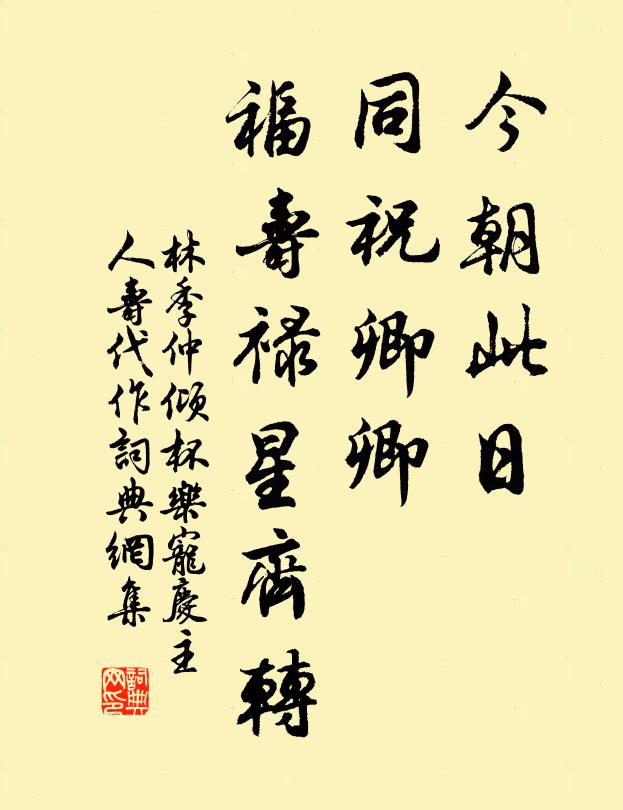 今朝此日
同祝卿卿
福壽禄星齊轉
林季仲傾杯樂寵慶主
人壽代作詞典網集
詞典網印